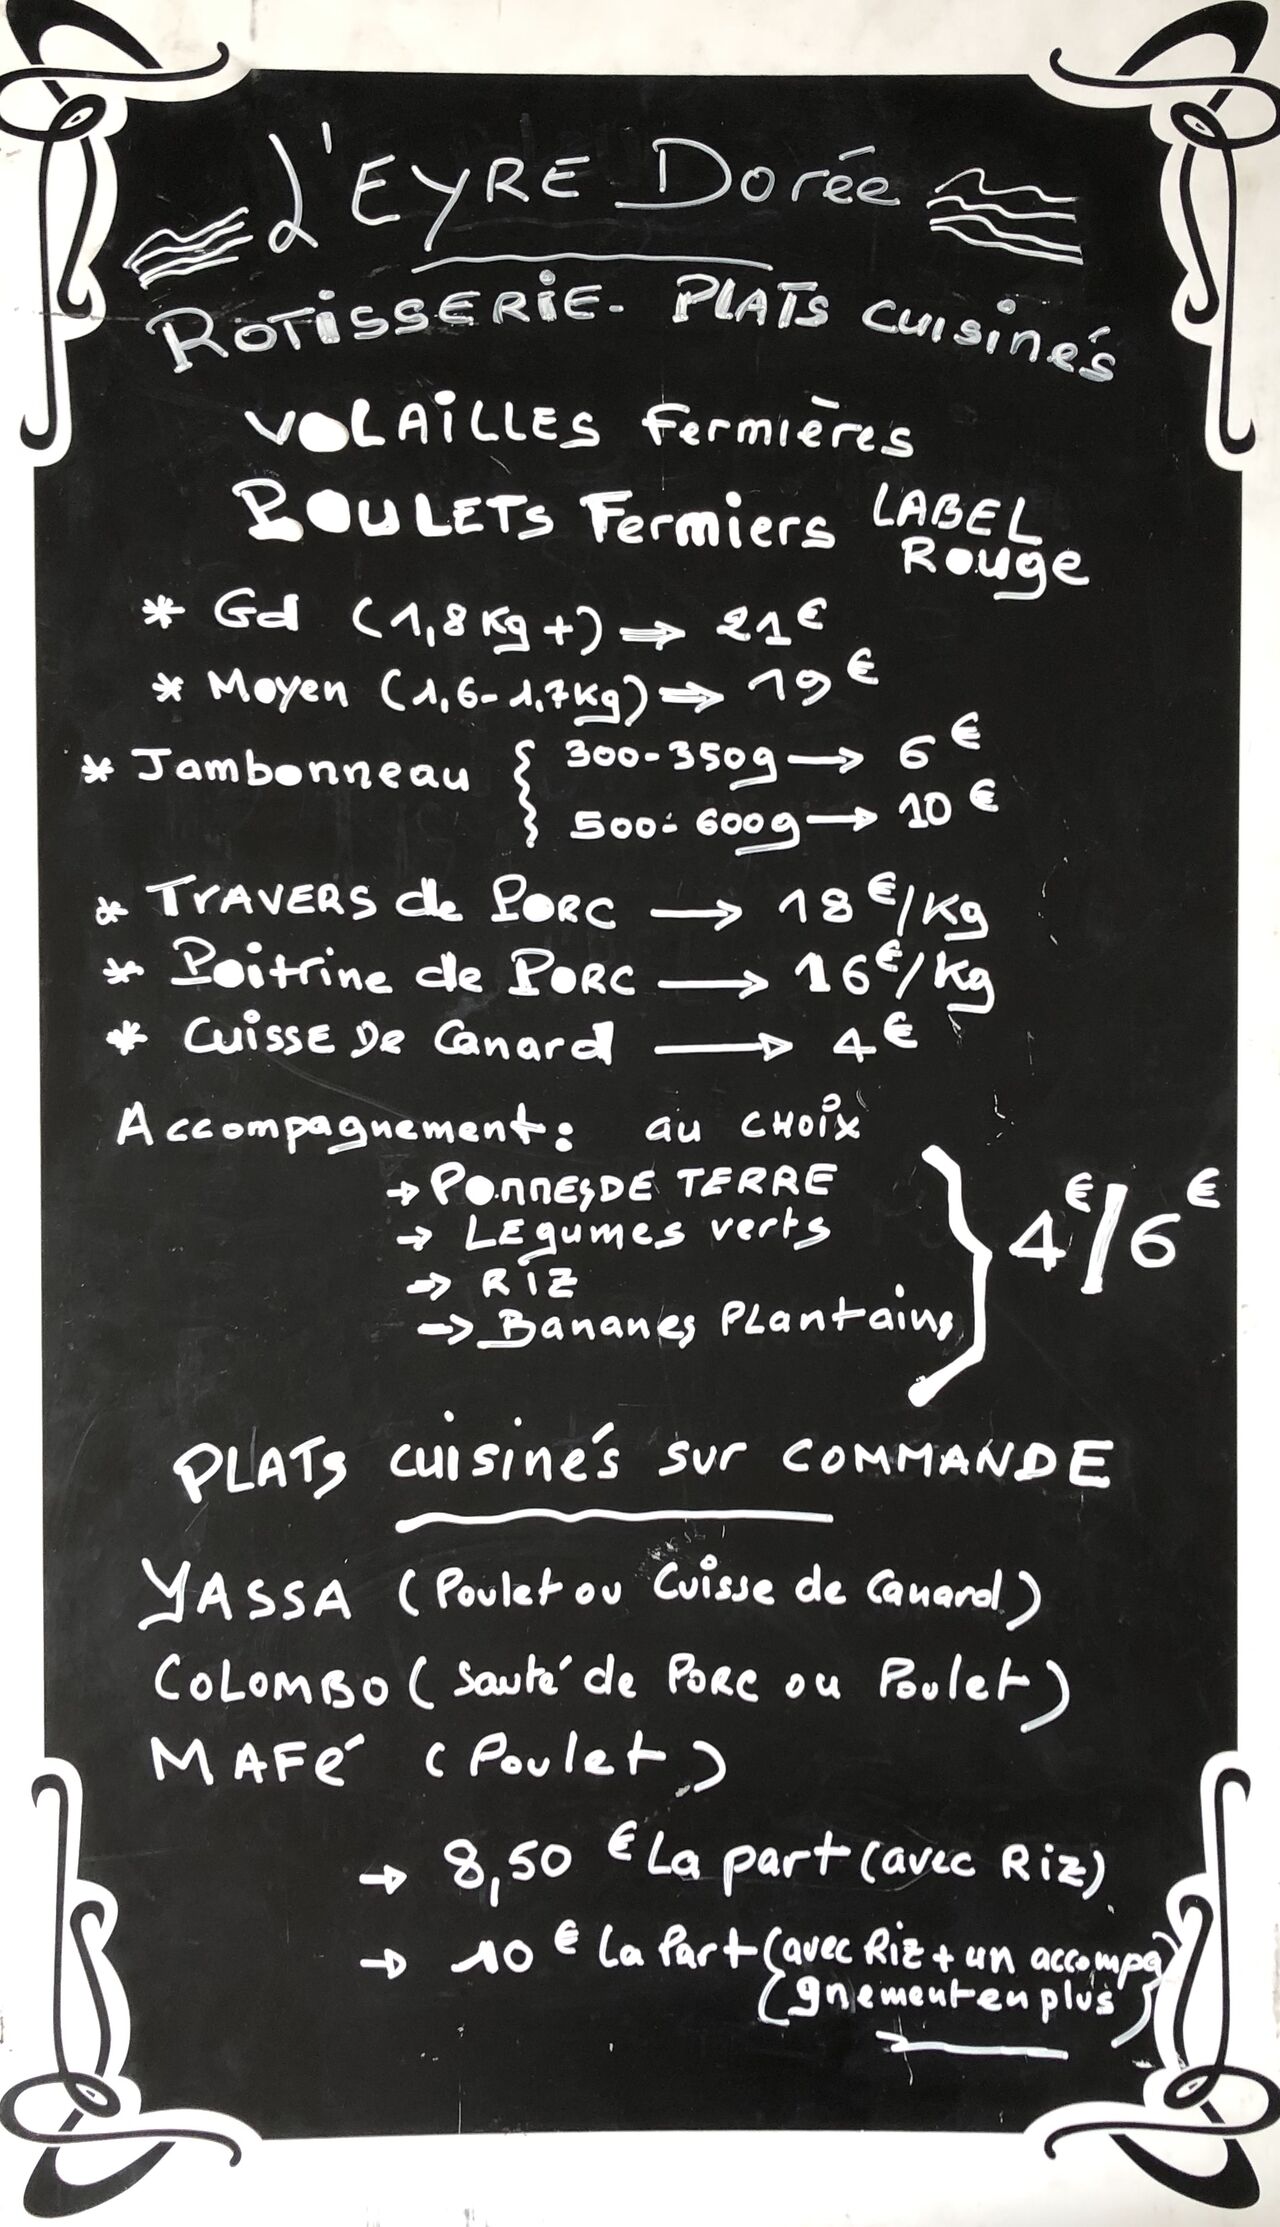 L'EYRE Dorée
ROTISSERIE - PLATS CUISINÉS
VOLAILLES Fermières
POULETS Fermiers LABEL
Rouge
* Gd (1,8 Kg +) → 21€
* Moyen (1,6-1,7Kg) → 19€
* Jambonneau { 300-350g → 6€
500-600g → 10€
* TRAVERS de PORC → 18€/Kg
* Poitrine de PORC → 16€/Kg
* CUISSE De Canard → 4€
Accompagnement: au CHOIX
→ POMMES DE TERRE
→ LEgumes verts
→ RIZ
→ Bananes PLantains
} 4€/6€
PLATS CUISINÉS SUR COMMANDE
YASSA (Poulet ou Cuisse de Canard)
COLOMBO (Sauté de PORC ou Poulet)
MAFÉ (Poulet)
→ 8,50 € La part (avec Riz)
→ 10 € La Part (avec Riz + un accompa
gnement en plus)